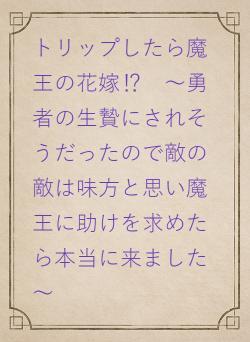 トリップしたら魔
王の花嫁⁉　〜勇
者の生贄にされそ
うだったので敵の
敵は味方と思い魔
王に助けを求めた
ら本当に来ました
〜